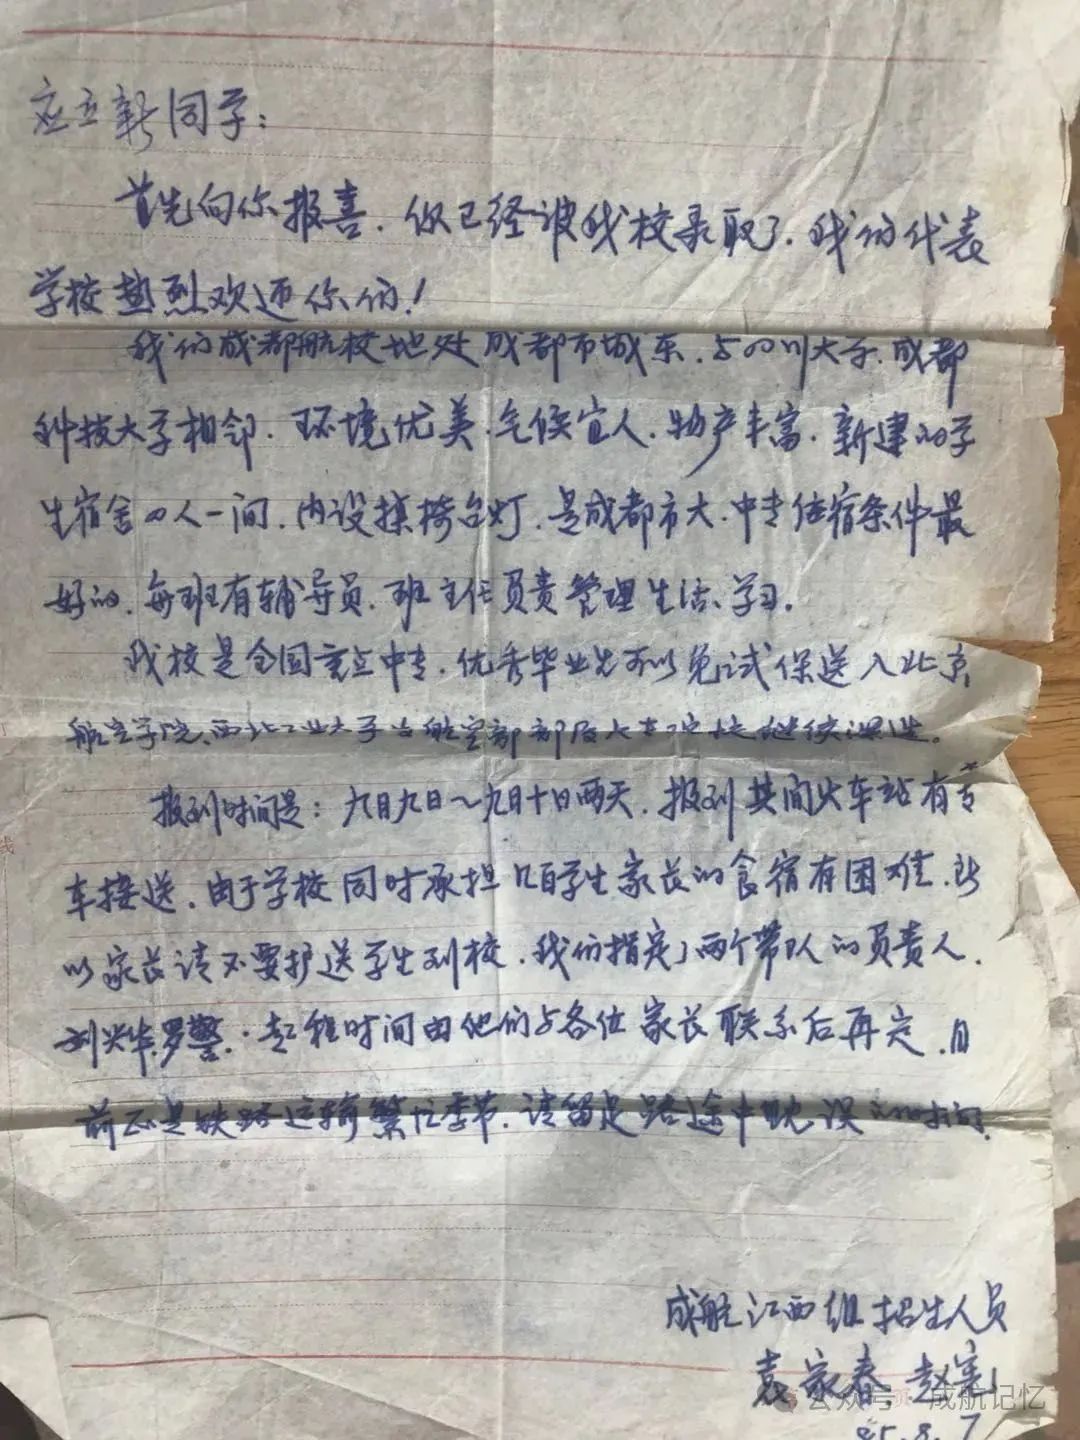 应立新同学：
首先向你报喜．你已经被我校录取了．我们代表
学校热烈欢迎你们！
我们成都航校地处成都市城东．与四川大学．成都
科技大学相邻．环境优美．气候宜人．物产丰富．新建的学
生宿舍四人一间．内设桌椅台灯．是成都市大．中专住宿条件最
好的．每班有辅导员．班主任负责管理生活、学习．
我校是全国重点中专．优秀毕业生可以免试保送入北京
航空学院、西北工业大学等航空部部属大专院校继续深造。
报到时间是：九月九日～九月十日两天．报到其间火车站有专
车接送．由于学校同时承担几百学生家长的食宿有困难．所
以家长请不要护送学生到校．我们指定了两个带队的负责人．
刘兴华．罗警．起程时间由他们与各位家长联系后再定．目
前正是铁路运输繁忙季节．请留足路途中耽误的时间．
成航江西组招生人员
袁家春．赵宪
85．8．7
公众号 成航记忆